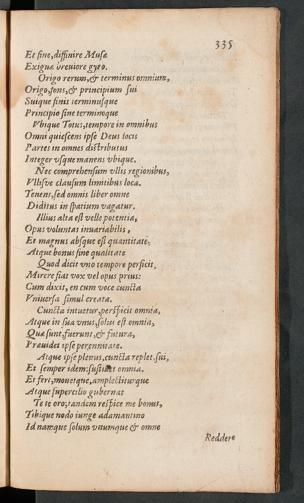 335
Et sine, diffinire Musæ
Exiguæ breuiore gyro.
Origo rerum, & terminus omnium,
Origo, fons, & principium sui
Suique finis terminusque
Principio sine terminoque
Vbique Totus, tempore in omnibus
Omni quiescens ipse Deus locis
Partes in omnes distributus
Integer vsque manens vbique.
Nec comprehensum vllis regionibus,
Vllisve clausum limitibus loca.
Tenent, sed omnis liber omne
Diditus in spatium vagatur.
Illius alta est velle potentia,
Opus voluntas inuariabilis,
Et magnus absque est quantitate,
Atque bonus sine qualitate
Quod dicit vno tempore persicit,
Mirere fiat vox vel opus prius:
Cum dixit, en cum voce cuncta
Vniuersa simul creata.
Cuncta intuetur, perspicit omnia,
Atque in sua vnus, solus est omnia,
Quæ sunt, fuerunt, & futura,
Præuidet ipse perennitate.
Atque ipse plenus, cuncta replet, sui,
Et semper idem: sustinet omnia.
Et fert, mouetque, amplectiturque
Atque supercilio gubernat
Te te oro; tandem respice me bonus,
Tibique nodo iunge adamantino
Id namque solum vnumque & omne
Reddere